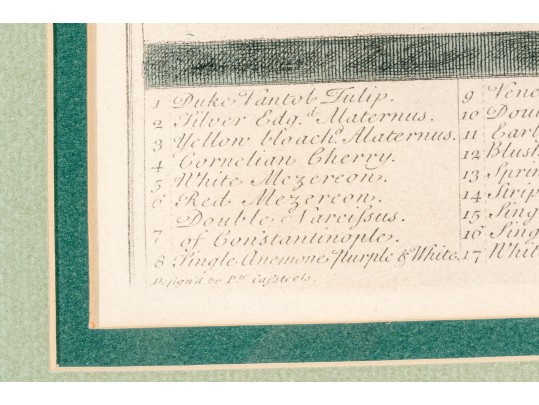 1 Duke Vantol Tulip.
2 Silver Edg.d Maternus.
3 Yellow bloach.d Maternus.
4 Cornelian Cherry.
5 White Mezereon.
6 Red Mezereon.
7 Double Narcissus
of Constantinople.
8 Single Anemone Purple & White.
Design'd by P.r Casteels.
9 Vene
10 Dou
11 Earl
12 Blush
13 Sprin
14 Strip
15 Sing
16 Sing
17 Whit